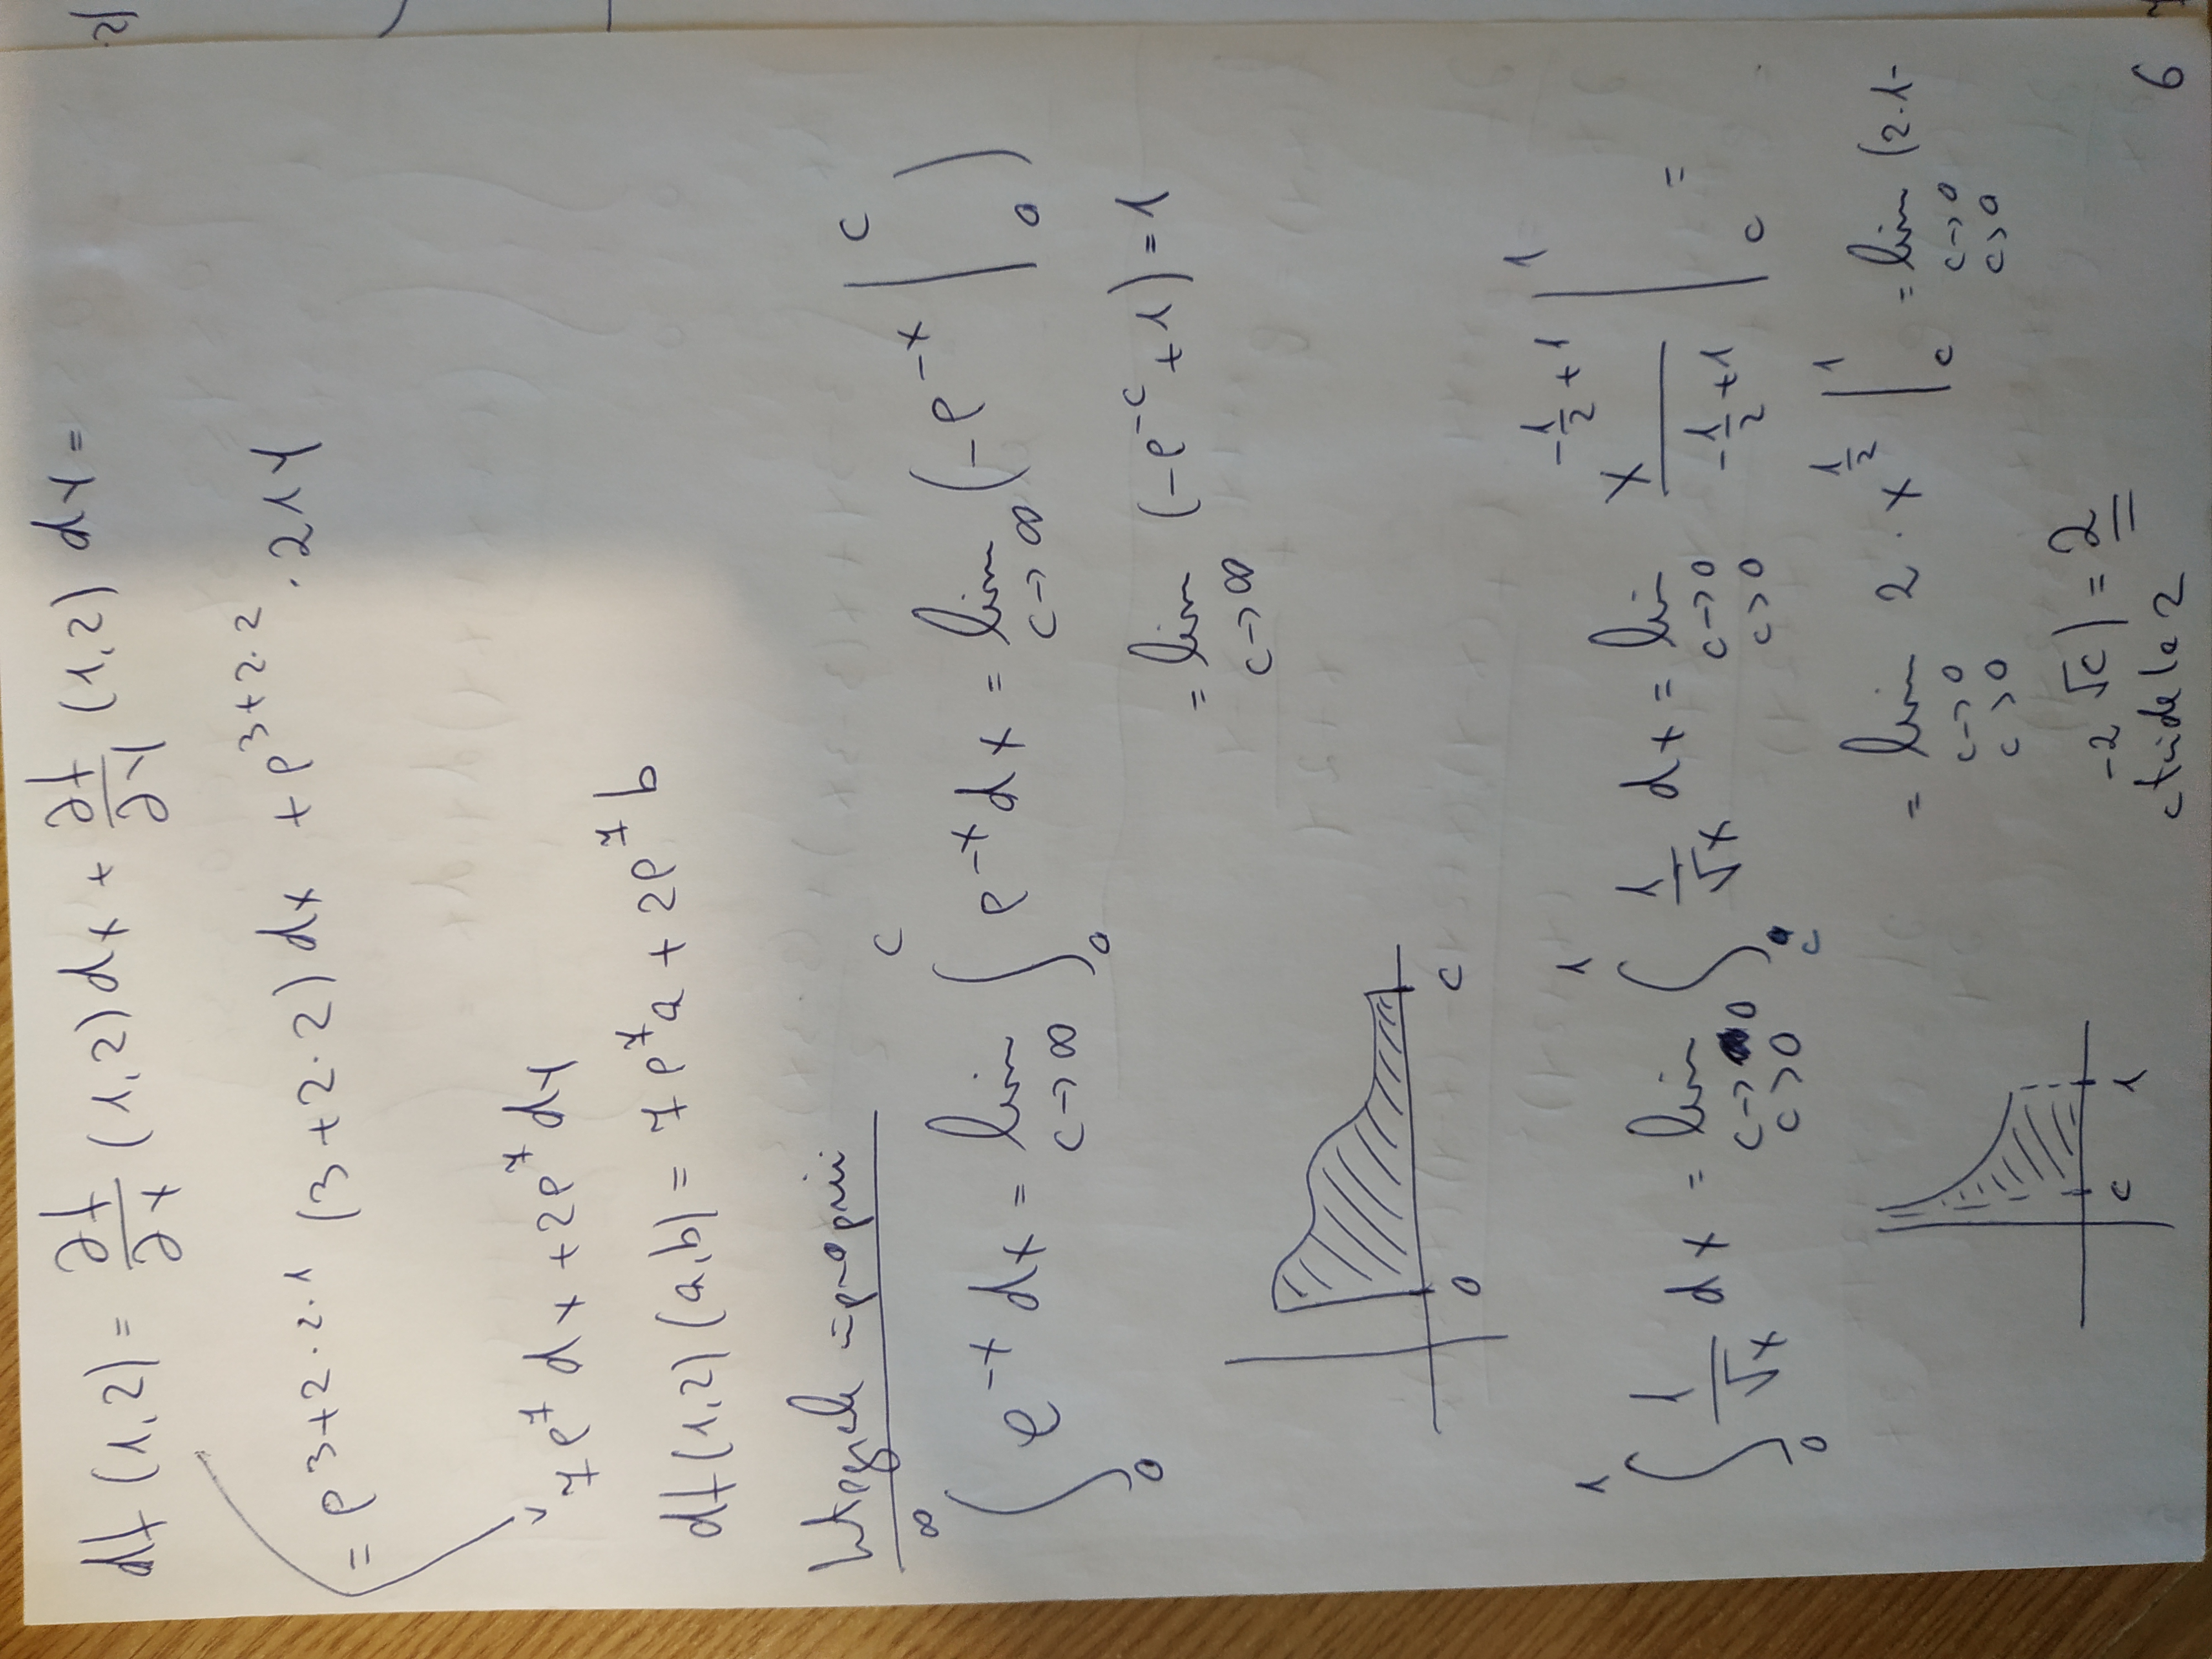 df (1,2) = ∂f/∂x (1,2) dx + ∂f/∂y (1,2) dy =
= e^{3+2·2·1} (3+2·2) dx + e^{3+2·2} · 2 1 y
7e^7 dx + 2e^7 dy
df (1,2) (a,b) = 7e^7 a + 2e^7 b
Integrale improprii
∫_0^∞ e^{-x} dx = lim_{c→∞} ∫_0^c e^{-x} dx = lim_{c→∞} (-e^{-x} |_0^c)
= lim_{c→∞} (-e^{-c} + 1) = 1
0 c
∫_0^1 1/√x dx = lim_{c→0 c>0} ∫_c^1 1/√x dx = lim_{c→0 c>0} x^{-1/2+1}/(-1/2+1) |_c^1 =
= lim_{c→0 c>0} 2 · x^{1/2} |_c^1 = lim_{c→0 c>0} (2·1-
-2√c) = 2
c 1
tinde la 2
6